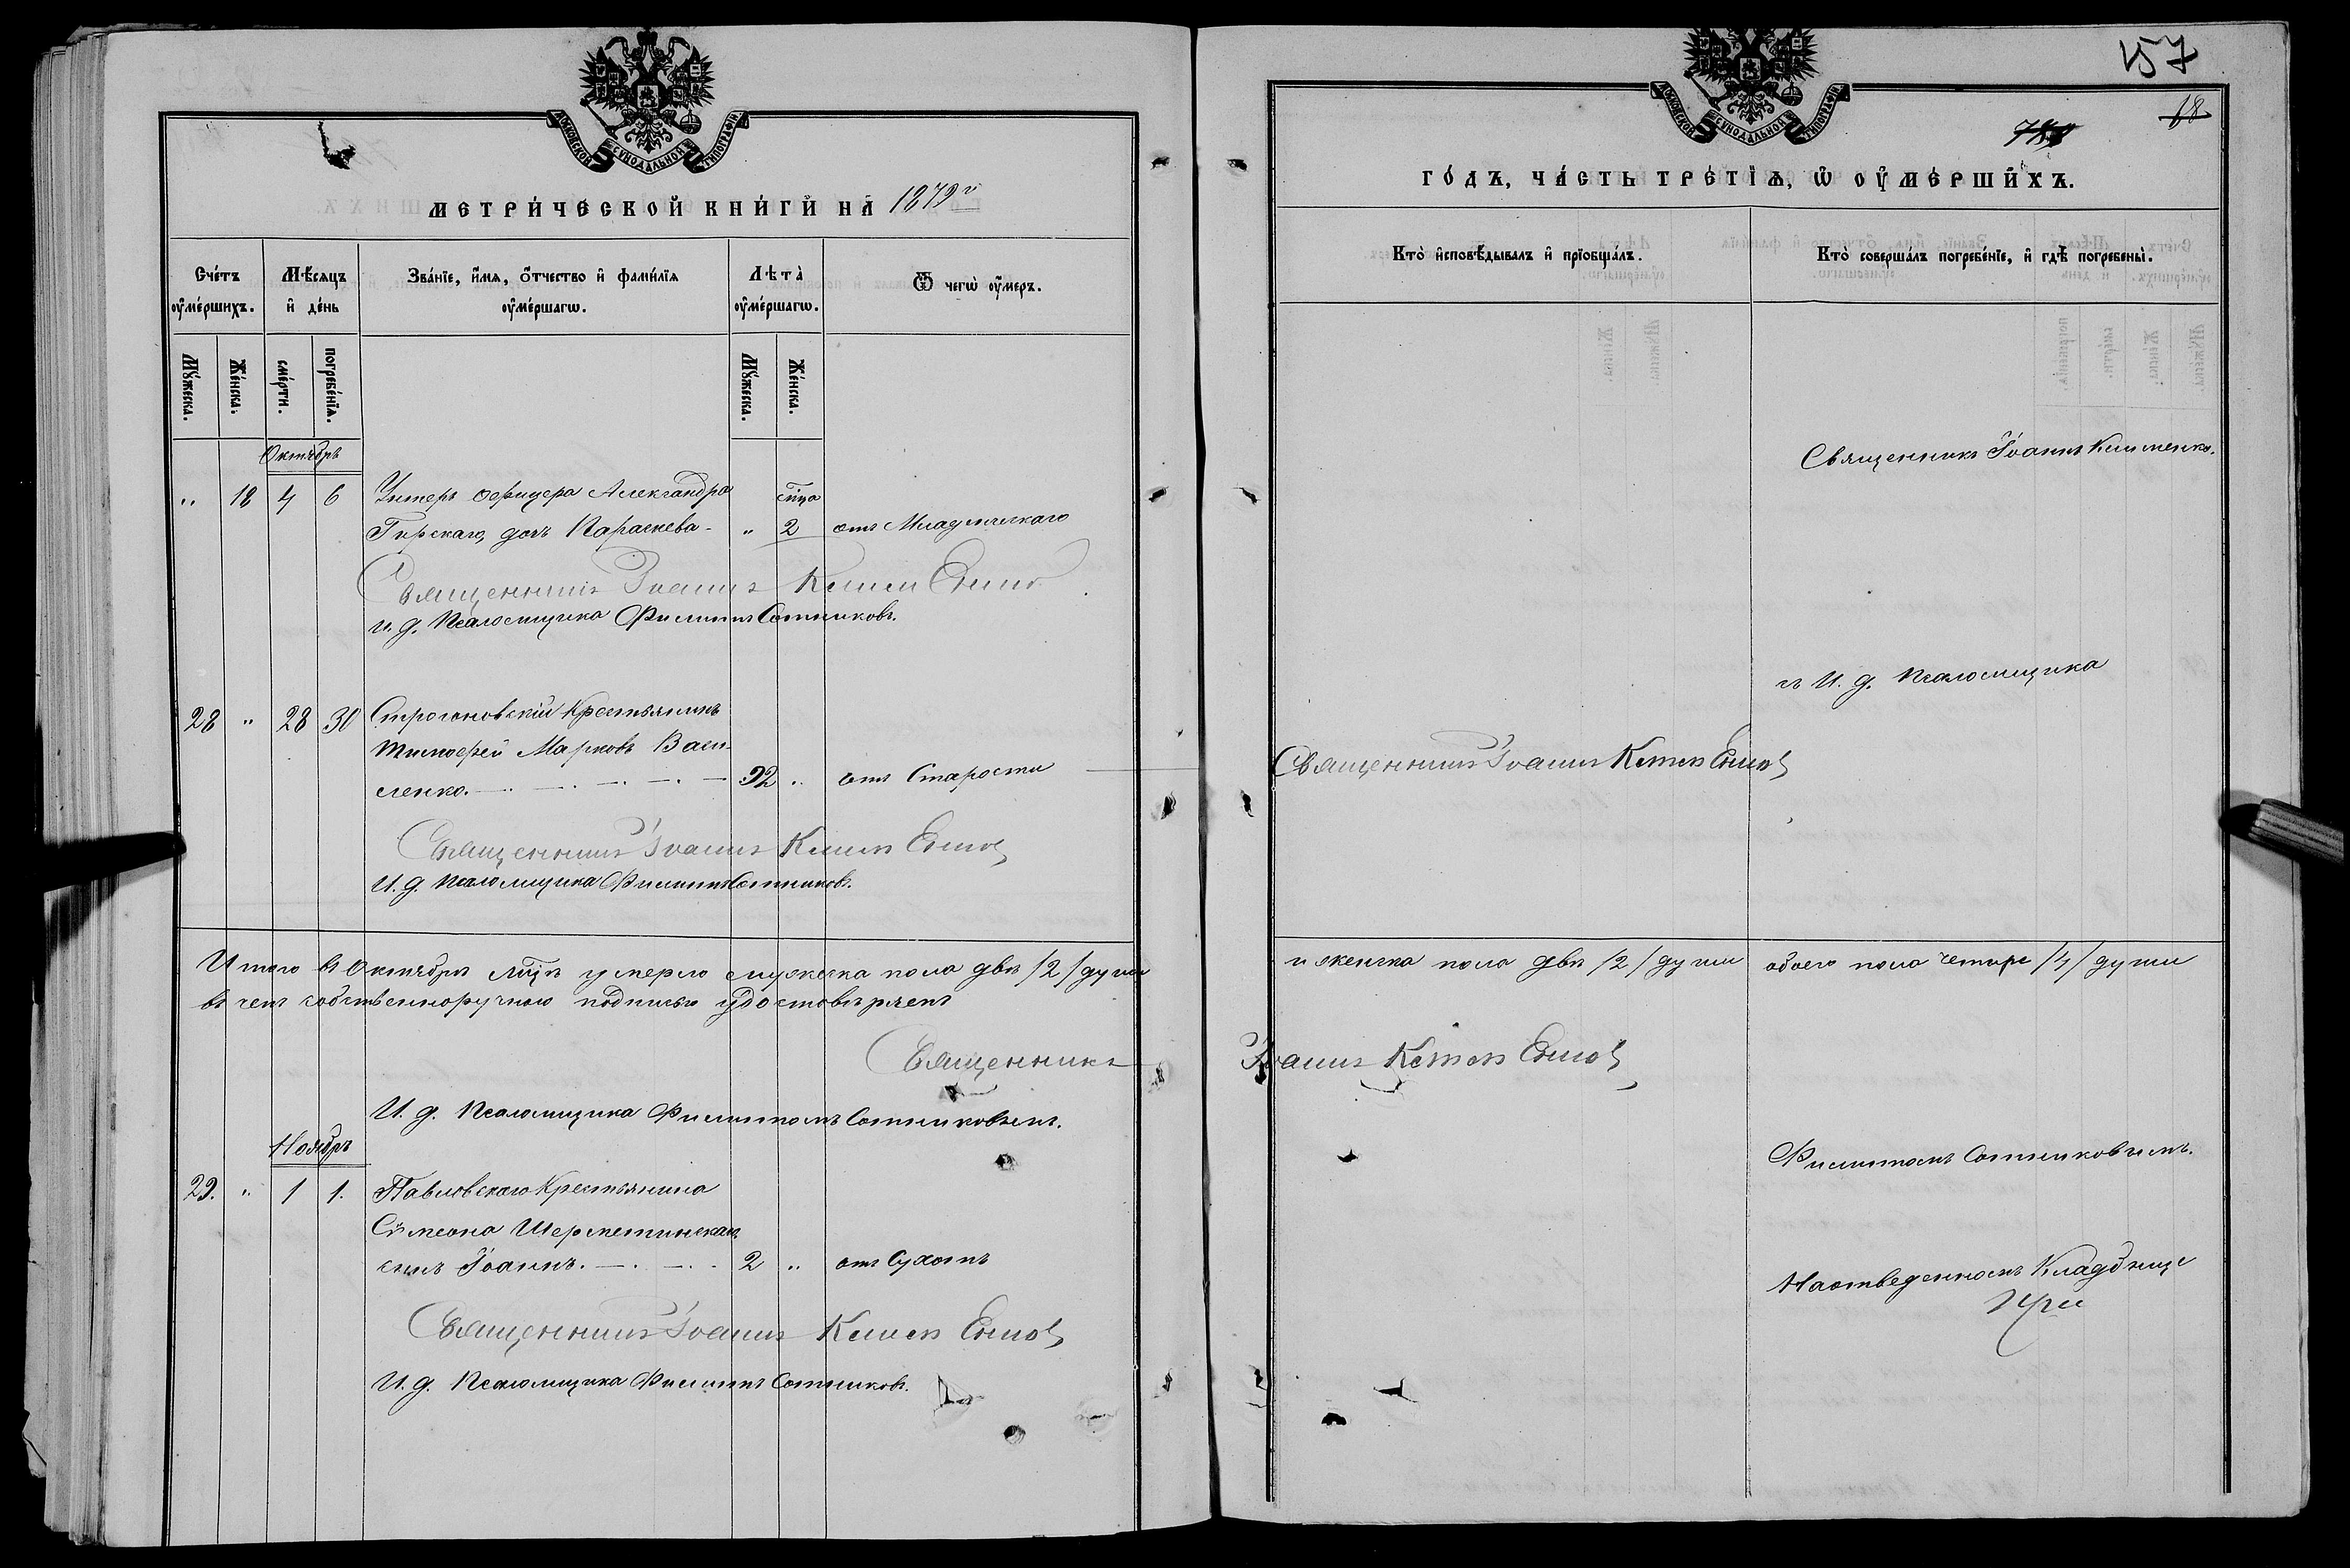 МОСКОВСКОЙ СУНОДАЛЬНОЙ ТИПОГРАФІИ
МЕТРИ́ЧЕСКОЙ КНИ́ГИ НА 1879й
Сче́тъ оу҆ме́ршихъ.
Мѣ́сяцъ и҆ де́нь
Зва́нїе, и҆́мя, ѻ҆́тчество и҆ фами́лїя оу҆ме́ршагѡ.
Лѣта̀ оу҆ме́ршагѡ.
Ѿ чегѡ̀ оу҆́меръ.
Мꙋ́жеска.
Же́нска.
сме́рти.
погребе́нїѧ.
Мꙋ́жеска.
Же́нска.
Октябрь
" 18 4 6 Унтеръ офицера Александра мѣца
Гирскаго, дочь Параскева - " 2 отъ Младенческаго
Священникъ Іоаннъ Клименко
И. д. Псаломщика Филиппъ Сотниковъ.
28 " 28 30 Строгоновскій Крестьянинъ
Тимофей Марковъ Васи-
ленко. 92 " отъ Старости
Священникъ Іоаннъ Клименко
И. д. Псаломщика Филиппъ Сотниковъ.
Итого въ Октябрѣ мѣцѣ умерло мужеска пола двѣ /2/ души
въ чемъ собственноручною подписью удостовѣряемъ
Священникъ
И. д. Псаломщика Филиппъ Сотниковъ.
Ноябрь
29. " 1 1. Павловскаго Крестьянина
Сѵмеона Шереметинскаго
сынъ Іоаннъ. 2 " отъ Сухотъ
Священникъ Іоаннъ Клименко
И. д. Псаломщика Филиппъ Сотниковъ.
157
18
МОСКОВСКОЙ СУНОДАЛЬНОЙ ТИПОГРАФІИ
ГО́ДЪ, ЧА́СТЬ ТРЕ́ТЇѦ, Ѡ҆ ОУ҆МЕ́РШИХЪ.
Кто̀ и҆сповѣ́дывалъ и҆ прїѡбща́лъ.
Кто̀ соверша́лъ погребе́нїе, и҆ гдѣ̀ погребены̀.
Священникъ Іоаннъ Клименко.
съ И. д. Псаломщика
Священникъ Іоаннъ Клименко
и женска пола двѣ /2/ души обоего пола четыре /4/ души
Іоаннъ Клименко
Филиппомъ Сотниковимъ.
На отведенномъ Кладбище